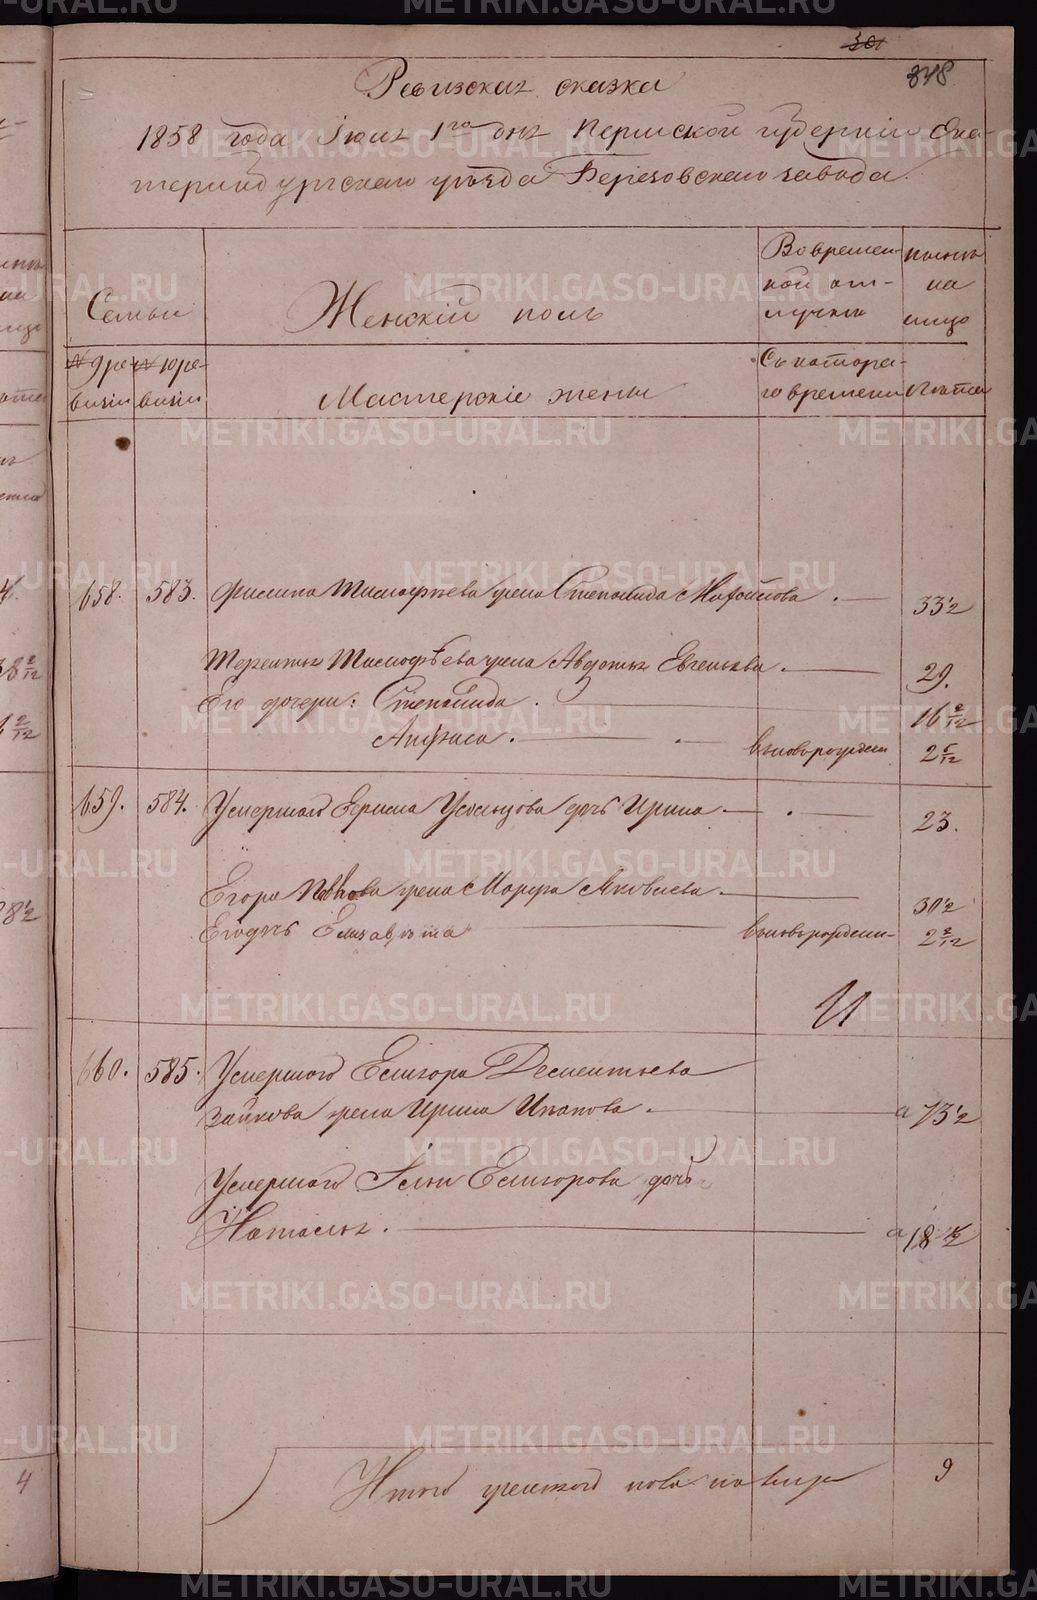 301
348
Ревизская сказка
1858 года Июля 1го дня Пермской губернiи Ека-
теринбургскаго уѣзда Березовскаго завода.
Семьи
Женскiй полъ
Во времен-
ной от-
лучкѣ
нынѣ
на
лицо
№ 9 ре-
визiи
№ 10 ре-
визiи
Мастерскiе жены
Съ котора-
го времени
Лѣта
658. 583. Филипа Тимофѣева жена Степанида 33 1/2
Терентья Тимофѣева жена Авдотья Евгеньева. 29.
Его дочери: Степанида. 16 2/12
Анфиса. вновьрожден 2 5/12
659. 584. Умершаго Ефима Усольцова дочь Ирина 23.
Егора жена Марфа Яковлева. 30 1/2
Его дочь Елизавѣта вновьрожден- 2 2/12
И
660. 585. Умершаго Елизара Дементьева
Зайкова жена Ирина Ипатова. а 73 1/2
Умершаго Ильи Елизарова дочь
Наталья. а 18 1/2
Итого женскаго пола на лицо 9
METRIKI.GASO-URAL.RU